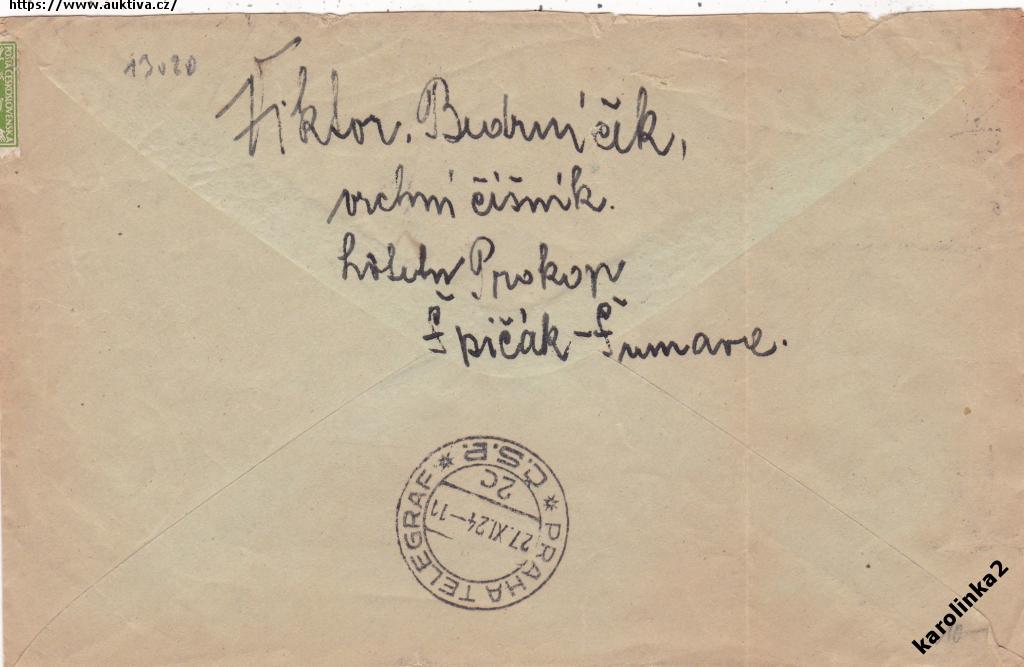 https://www.auktiva.cz/
POŠTA ČESKOSLOVENSKÁ
13020
Viktor. Budrníčik,
vrchní číšník.
hôtelu Prokop
Špičák-Šumave.
PRAHA TELEGRAF * Č.S.P. *
2C
27.XI.24–11
karolinka2